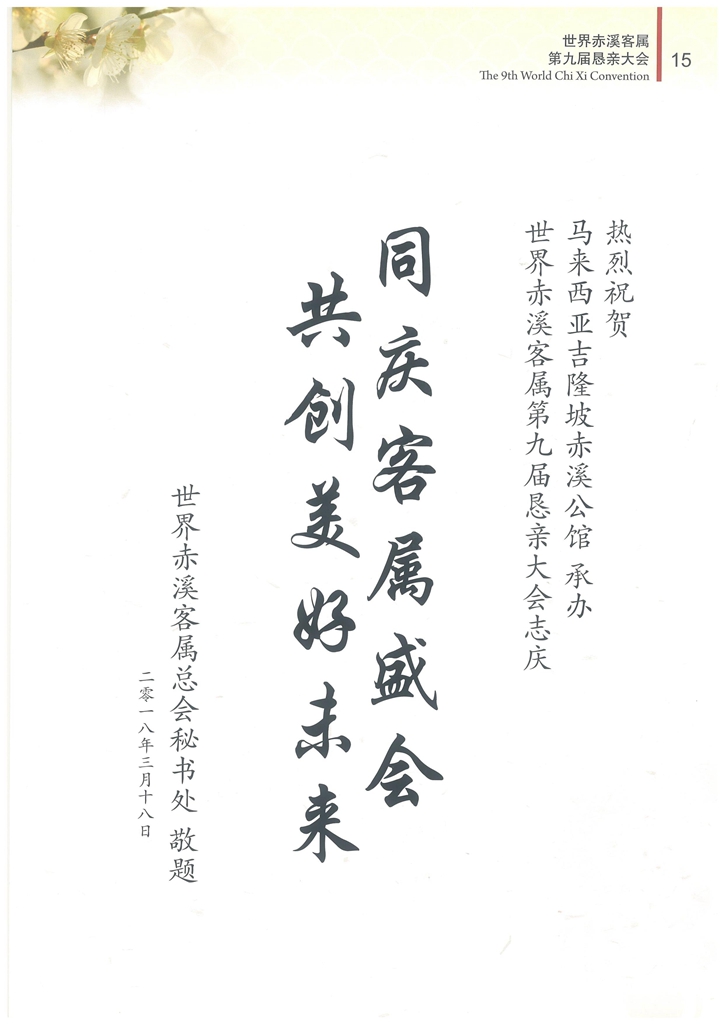 世界赤溪客属
第九届恳亲大会
The 9th World Chi Xi Convention
15
热烈祝贺
马来西亚吉隆坡赤溪公馆 承办
世界赤溪客属第九届恳亲大会志庆
同庆客属盛会
共创美好未来
世界赤溪客属总会秘书处 敬题
二零一八年三月十八日